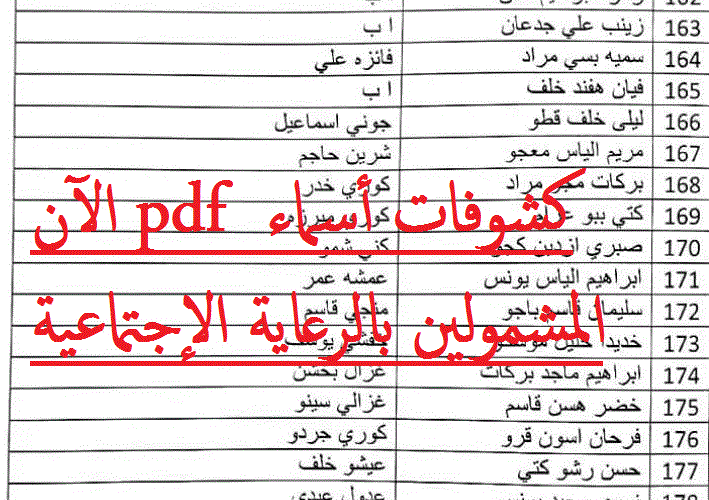 163 زينب علي جدعان ا ب
164 سميه بسي مراد فائزه علي
165 فيان هفند خلف ا ب
166 ليلى خلف قطو جوني اسماعيل
167 مريم الياس معجو شرين حاجم
168 بركات مراد كوري خدر
كشوفات أسماء pdf الآن
169 كتي ببو كوري ميرزه
170 صبري ازدين كني شمو
171 ابراهيم الياس يونس عمشه عمر
172 سليمان قاسم باجو منجي قاسم
المشمولين بالرعاية الإجتماعية
173 خديد خليل
174 ابراهيم ماجد بركات غزال
175 خضر هسن قاسم غزالي سينو
176 فرحان اسون قرو كوري جردو
177 حسن رشو كتي عيشو خلف
178 عدول عبدي